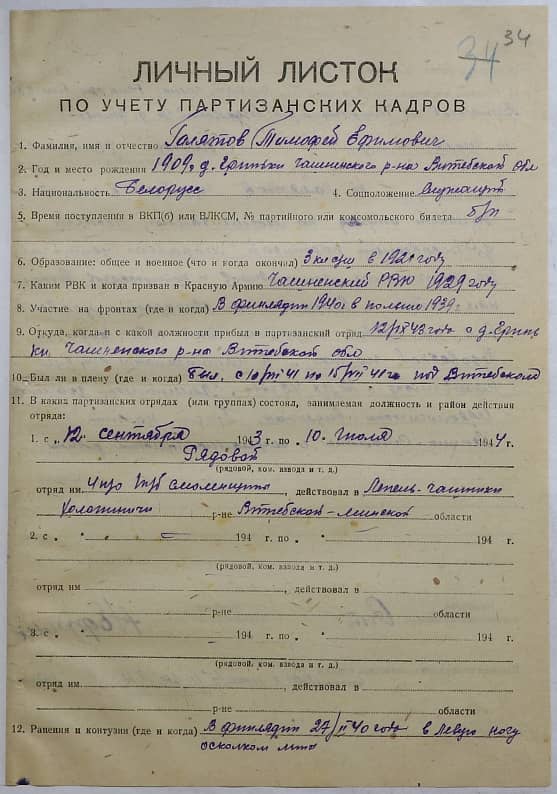 34 34
ЛИЧНЫЙ ЛИСТОК
ПО УЧЕТУ ПАРТИЗАНСКИХ КАДРОВ
1. Фамилия, имя и отчество Голятов Тимофей Ефимович
2. Год и место рождения 1909 г д. Чашненского р-на Витебской обл
3. Национальность Белорусс 4. Соцположение Служащий
5. Время поступления в ВКП(б) или ВЛКСМ, № партийного или комсомольского билета б/п
6. Образование: общее и военное (что и когда окончил) 3 класса в 1921 году
7. Каким РВК и когда призван в Красную Армию Чашненский РВК 1929 году
8. Участие на фронтах (где и когда) В финлядии 1940г в польше 1939г
9. Откуда, когда и с какой должности прибыл в партизанский отряд 12/IX 43 года с д.
Чашненского р-на Витебской обл
10. Был ли и плену (где и когда) Был с 10/VII 41 по 15/VII 41 г под Витебском
11. В каких партизанских отрядах (или группах) состоял, занимаемая должность и район действия
отряда:
1. с „12“ сентября 1943 г. по „10“ июля 1944 г.
Рядовой
(рядовой, ком. взвода и т. д.)
отряд им , действовал в Лепель-Чашники
Холопиничи р-не Витебской-Минской области
2. с „ “ 194 г. по „ “ 194 г.
(рядовой, ком. взвода и т. д.)
отряд им , действовал в
р-не области
3. с „ “ 194 г. по „ “ 194 г.
(рядовой, ком. взвода и т. д.)
отряд им. , действовал в
р-не области
12. Ранения и контузии (где и когда) В финлядии 27/II 40 года в левую ногу
осколком